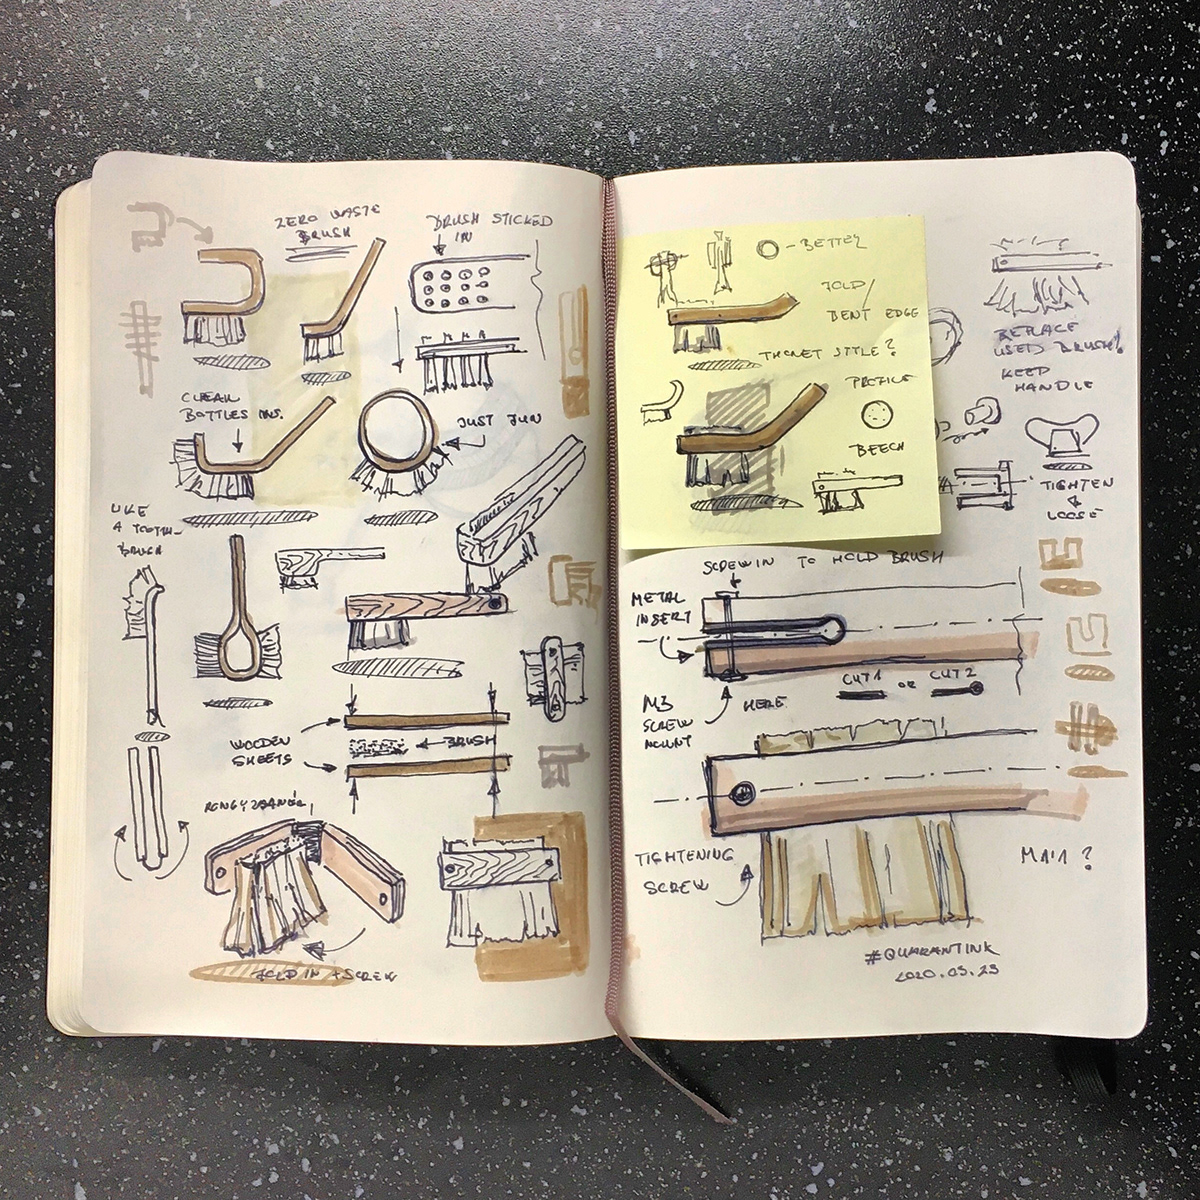 ZERO WASTE
BRUSH
BRUSH STICKED
IN
CLEAN
BOTTLES
JUST FUN
LIKE
A TOOTH-
BRUSH
WOODEN
SHEETS
BRUSH
FOLD IN + SCREW
- BETTER
FOLD/
BENT EDGE
THONET STYLE?
PROFILE
BEECH
REPLACE
USED BRUSH!
KEEP
HANDLE
TIGHTEN
&
LOOSE
SCREW IN TO HOLD BRUSH
METAL
INSERT
CUT1 OR CUT2
M3
SCREW
MOUNT
HERE
TIGHTENING
SCREW
#QUARANTINK
2020.03.23